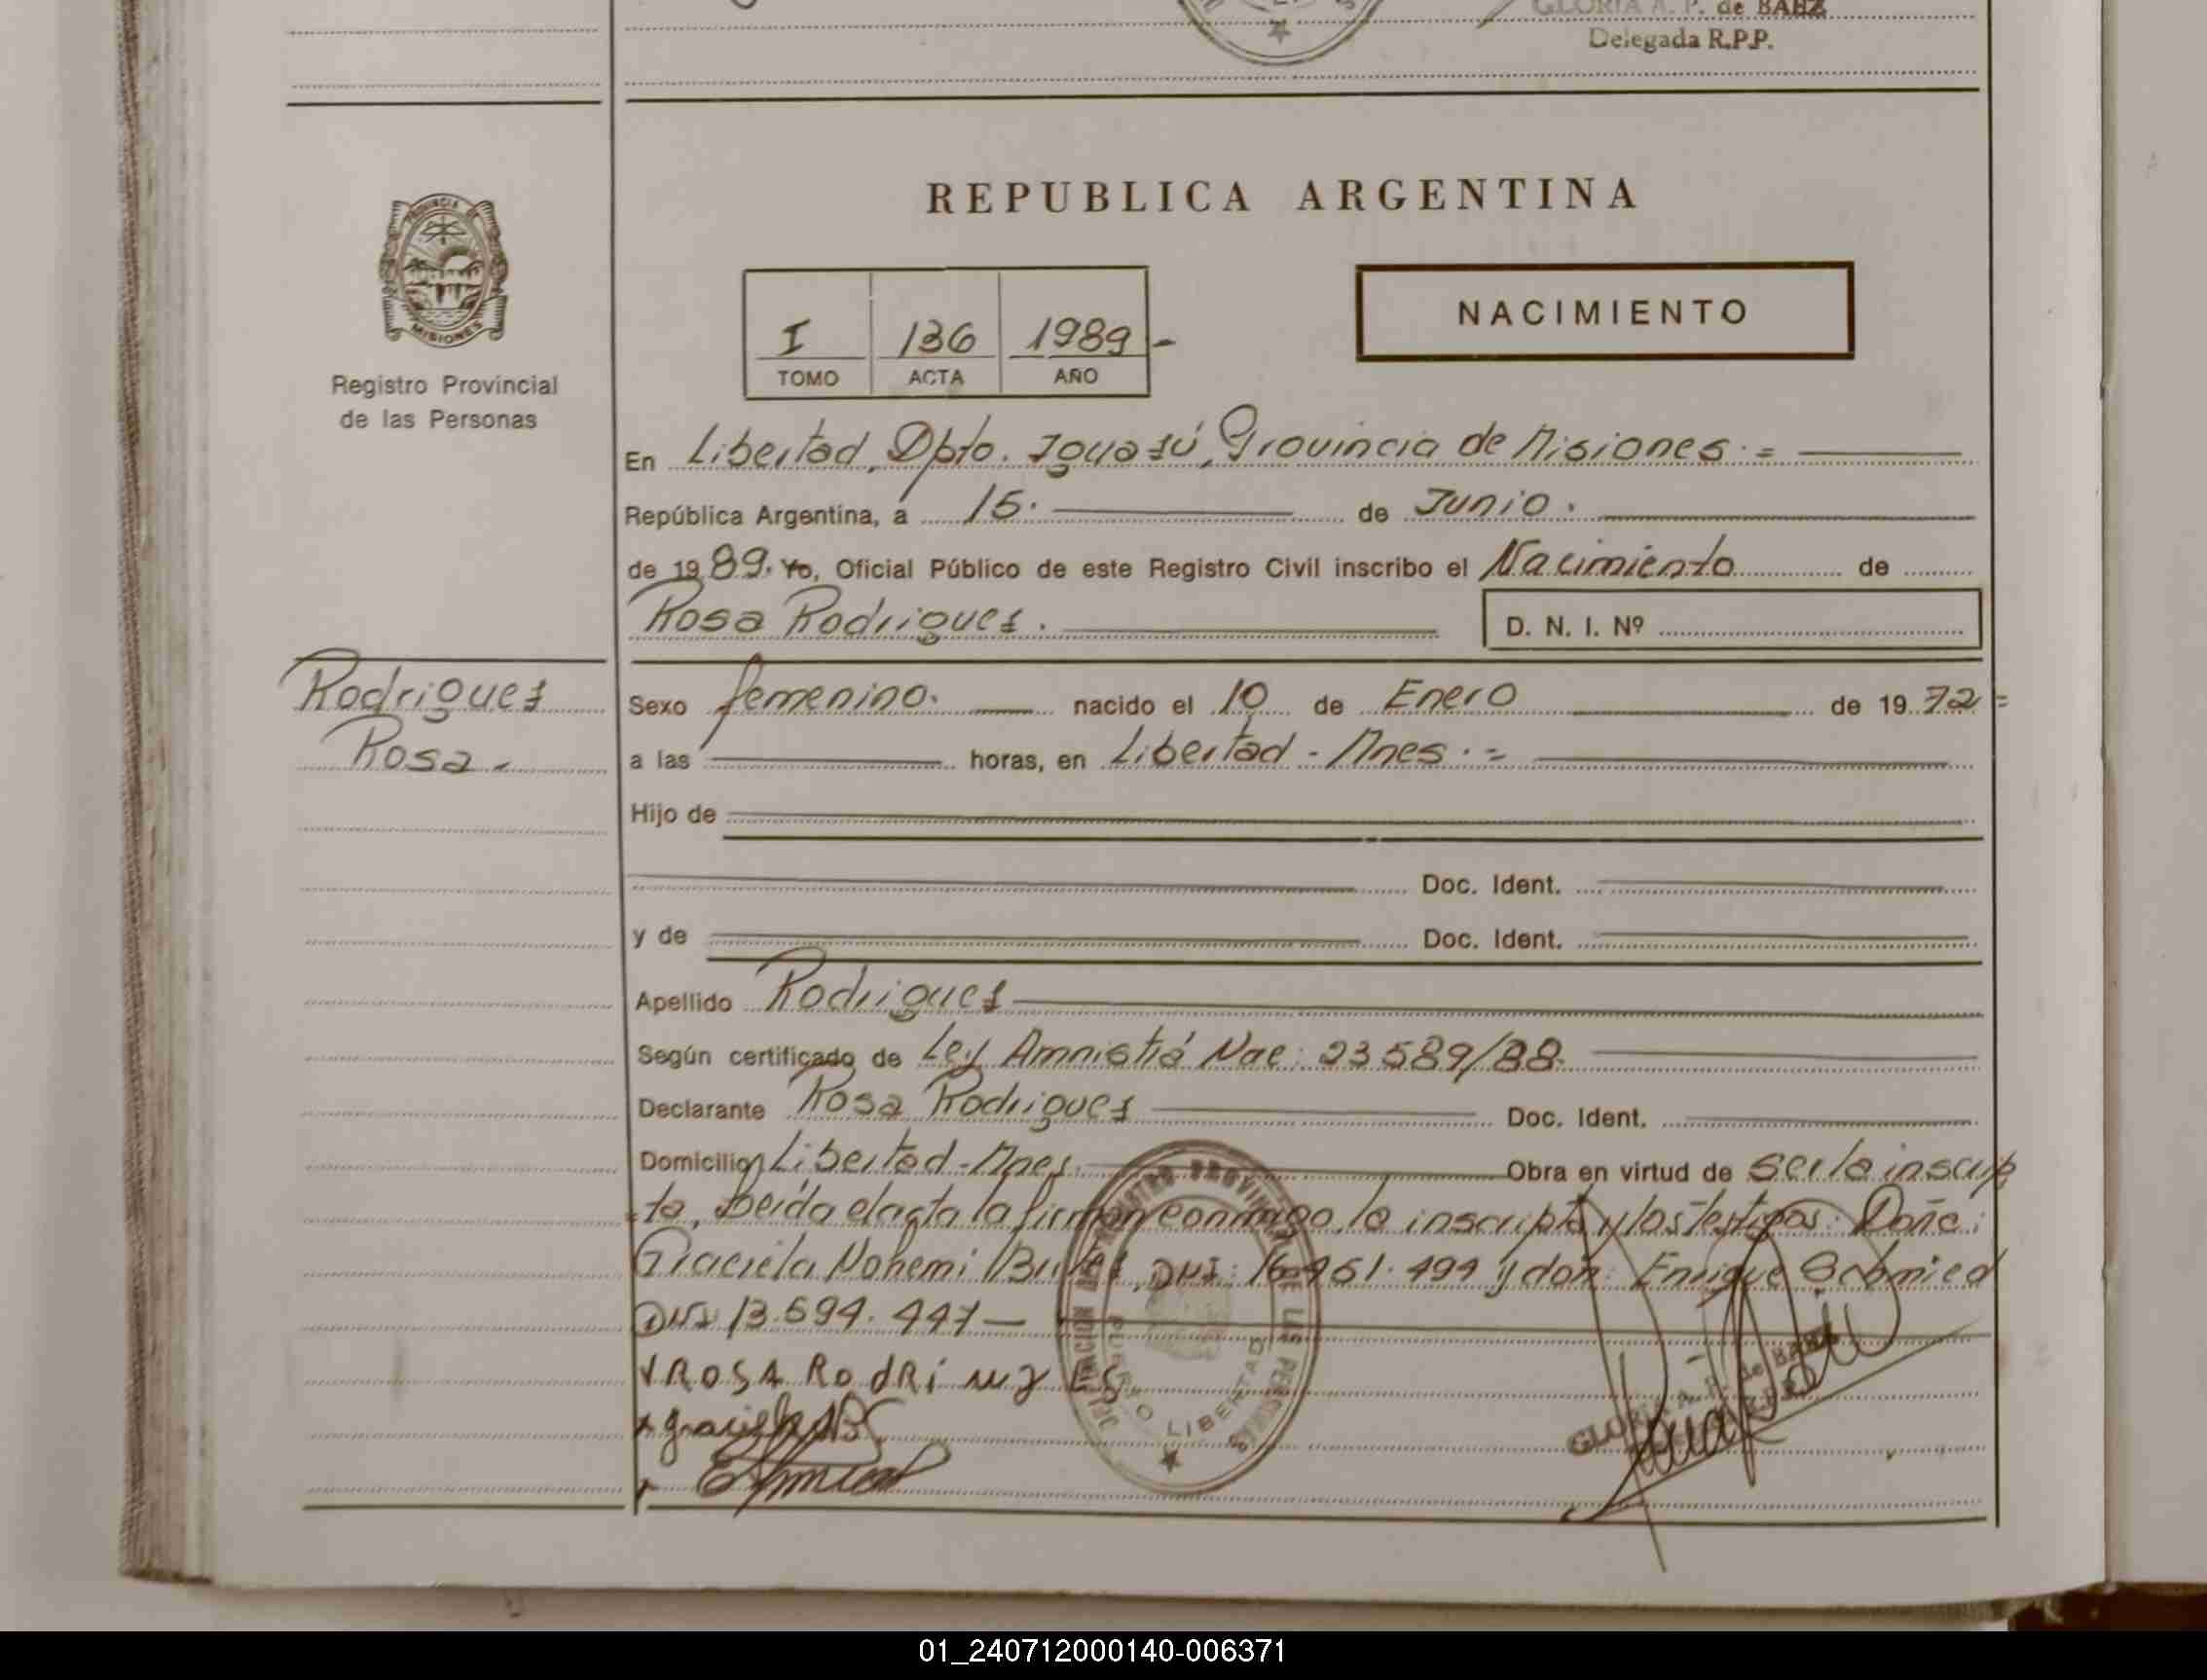 GLORIA A. P. de BAEZ
Delegada R.P.P.
PROVINCIA DE
MISIONES
Registro Provincial
de las Personas
REPUBLICA ARGENTINA
NACIMIENTO
I 136 1989-
TOMO ACTA AÑO
En Libertad, Dpto. Iguasú, Provincia de Misiones.=
República Argentina, a 15. de Junio.
de 1989. Yo, Oficial Público de este Registro Civil inscribo el Nacimiento de
Rosa Rodrigues. D. N. I. Nº
Rodrigues
Rosa.-
Sexo femenino. nacido el 10 de Enero de 1972=
a las horas, en Libertad - Mnes.=
Hijo de
Doc. Ident.
y de Doc. Ident.
Apellido Rodrigues
Según certificado de Ley Amnistiá Nac: 23589/88.
Declarante Rosa Rodrigues Doc. Ident.
Domicilio Libertad-Mnes. Obra en virtud de ser la inscrip
=ta, Leída el acta la firman conmigo, la inscripta y los testigos: Doña:
Graciela Nohemi DNI: y don: Enrique Schmied
DNI 13.594.447—
ROSA RODRIWGES
REGISTRO PROVINCIAL DE LAS PERSONAS
LIBERTAD
GLORIA A. P. de BAEZ
01_240712000140-006371